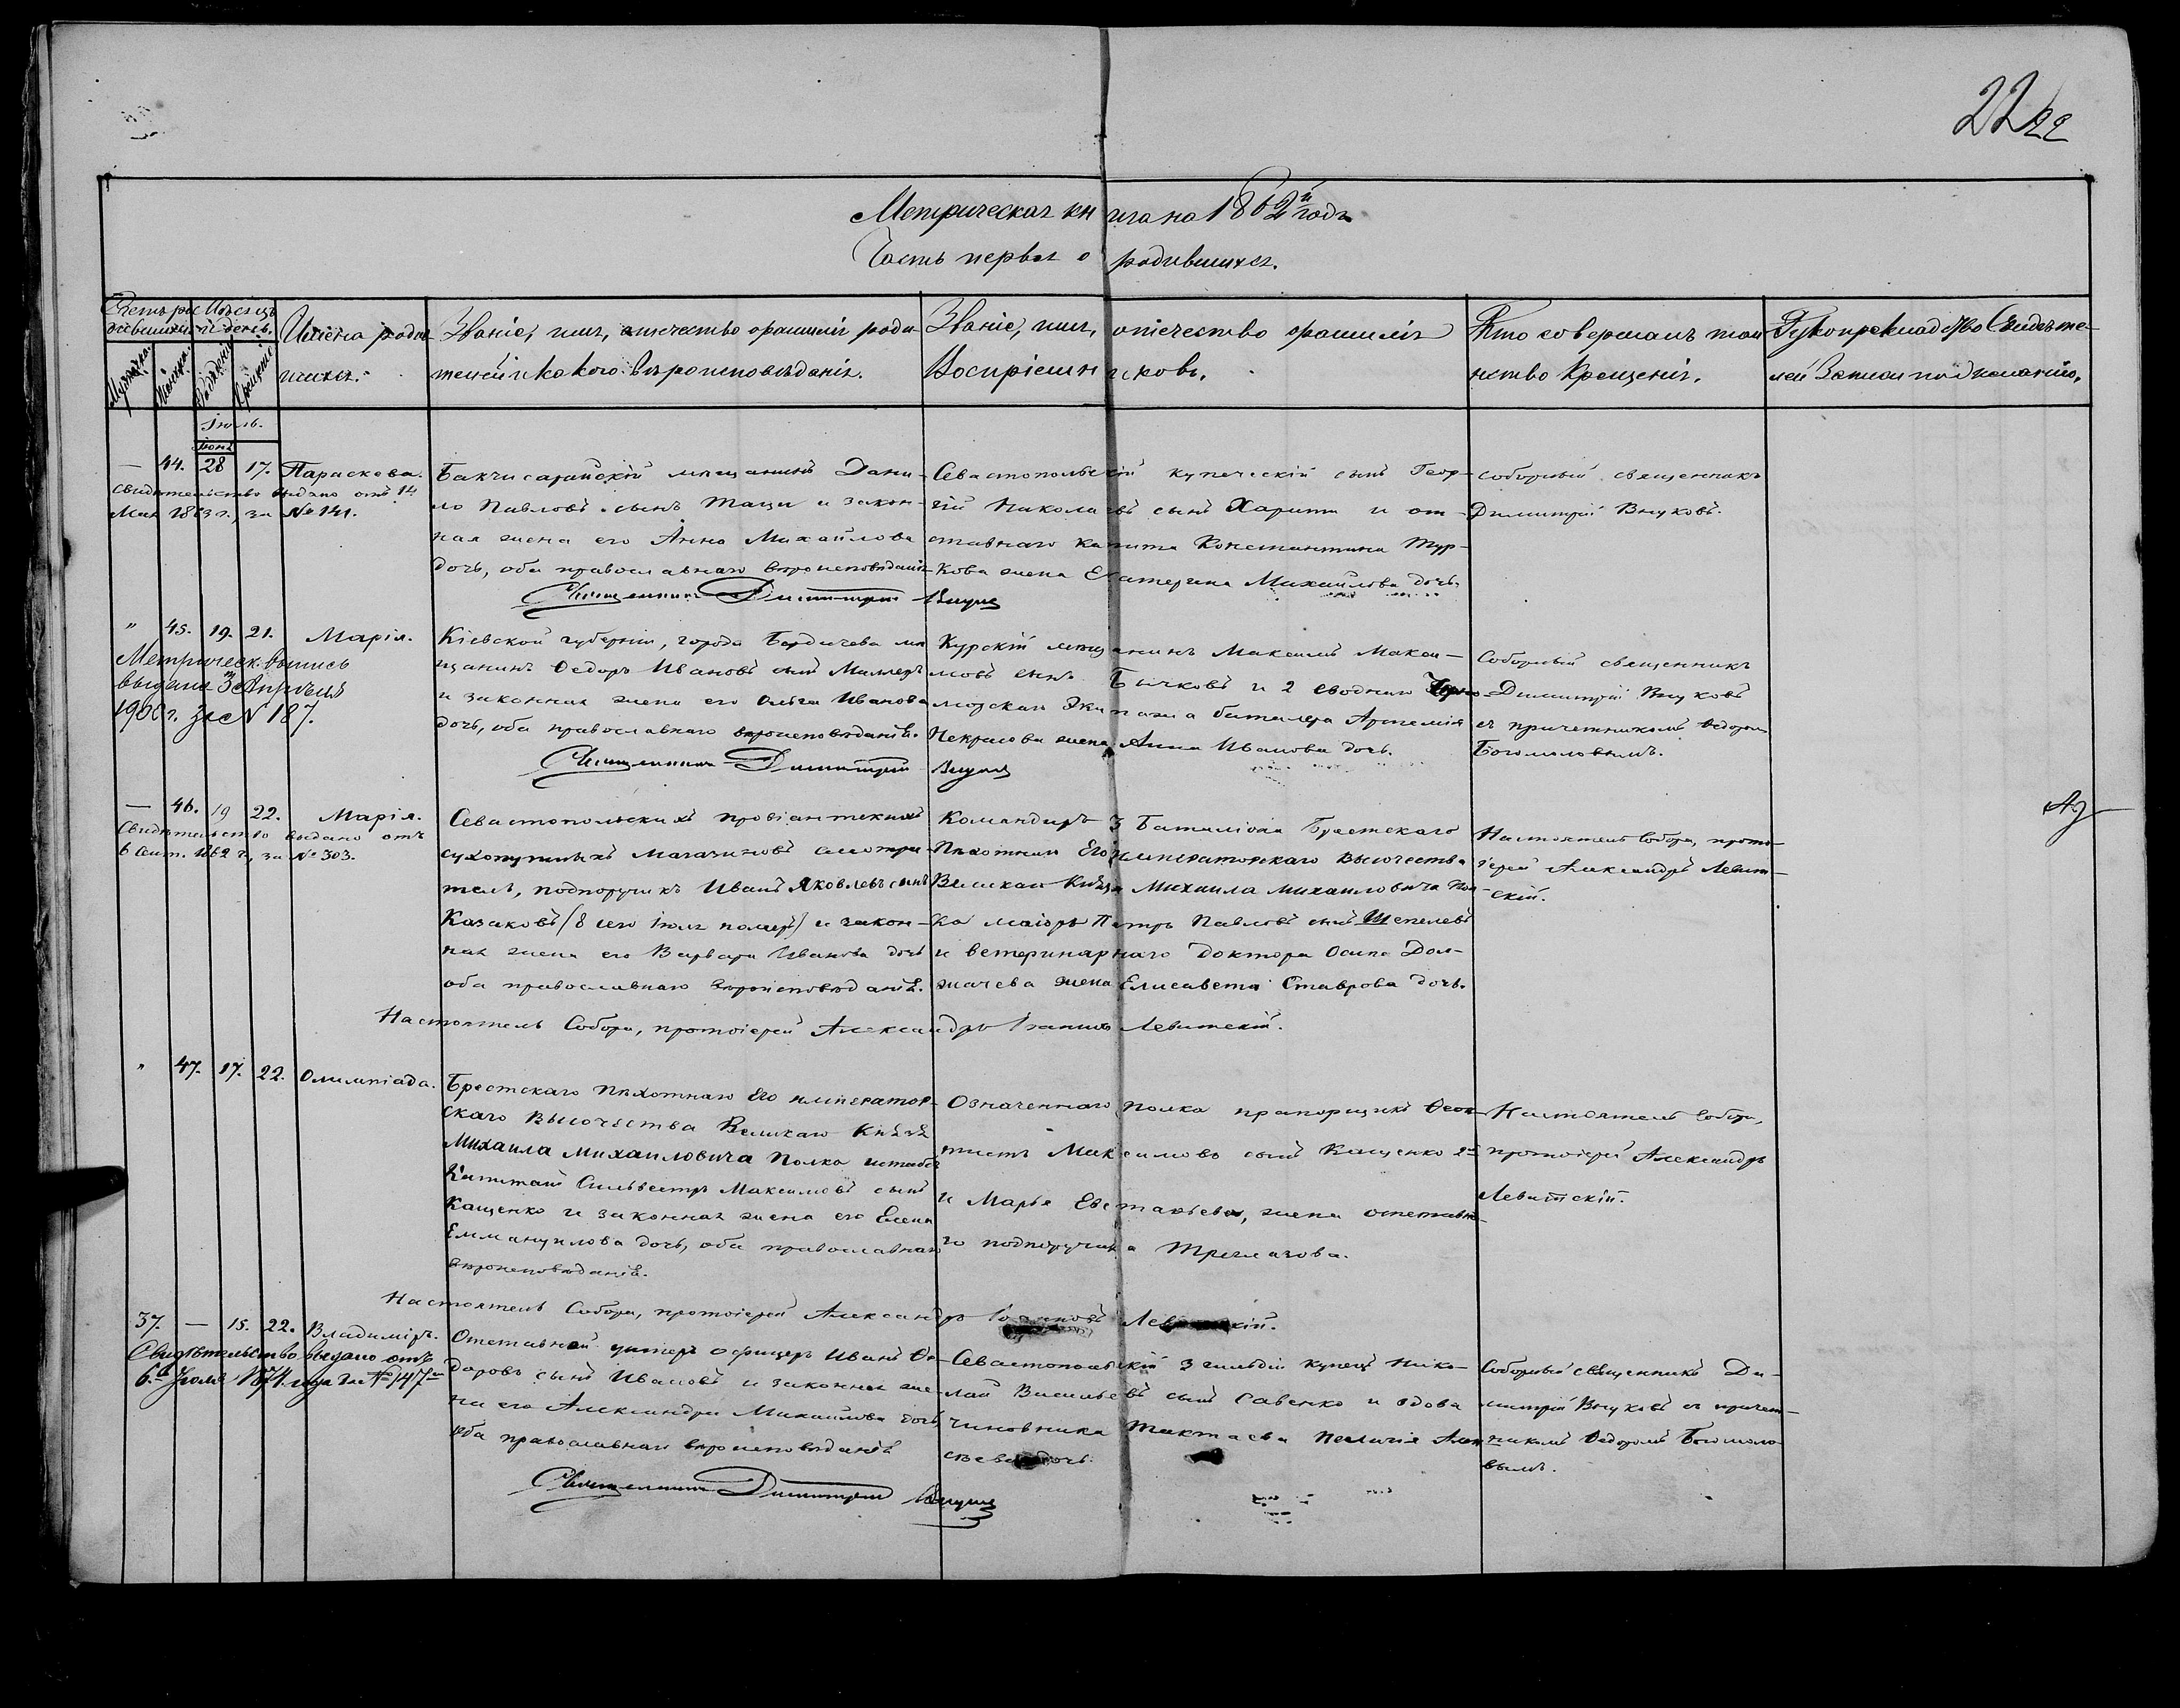 22 22
Метрическая книга на 1862й годъ
Часть первая о родившихся.
Счетъ родившихся
Мѣсяцъ и день.
Мужска.
Женска.
Рожденія
Крещенія
Имена родившихся.
Званіе, имя, отечество и фамилія родителей и какого вѣроисповѣданія.
Званіе, имя, отечество и фамилія Воспріемниковъ.
Кто совершалъ таинство Крещенія.
Рукоприкладство Свидѣтелей Записи по желанію.
Іюль.
Іюня
— 44. 28 17. Параскева.
Свидѣтельство выдано отъ 14
Мая 1863 г., за № 141.
Бакчисарайскій мѣщанинъ Дани-
ло Павловъ сынъ Таци и закон-
ная жена его Анна Михайлова
дочь, оба православнаго вѣроисповѣданія
Севастопольскій купеческій сынъ Геор-
гій Николаевъ сынъ Харити и от-
ставнаго капита Константина Тур-
кова жена Екатерина Михайлова дочь.
Соборный священникъ
Димитрій Внуковъ.
Священникъ Димитрій Внуковъ
" 45. 19. 21. Марія.
Метрическ. выпись
выдана 3 Апрѣля
1900 г. за № 187.
Кіевской губерніи, города Бердичева мѣ
щанинъ Ѳедоръ Ивановъ сынъ Миллеръ
и законная жена его Ольга Иванова
дочь, оба православнаго вѣроисповѣданія.
Курскій мѣщанинъ Максимъ Макси-
мовъ сынъ Бычковъ и 2 сводного Черно-
морскаго Экипажа баталера Артемія
Некрасова жена Анна Иванова дочь.
Соборный священникъ
Димитрій Внуковъ
съ причетникомъ Ѳедоромъ
Богомоловымъ.
Священникъ Димитрій Внуковъ
— 46. 19 22. Марія.
Свидѣтельство выдано отъ
6 Сент. 1862 г., за № 303.
Севастопольскихъ провіантскихъ
сухопутныхъ магазиновъ смотри-
тель, подпоручикъ Иванъ Яковлевъ сынъ
Казаковъ (8 сего Іюля померъ) и закон-
ная жена его Варвара Иванова дочь
оба православнаго вѣроисповѣданія.
Командиръ 3 Баталіона Брестскаго
Пѣхотнаго Его Императорскаго Высочества
Великаго Князя Михаила Михаиловича Пол-
ка маіоръ Петръ Павловъ сынъ Шепелевъ
и ветеринарнаго доктора Осипа Дол-
жачева жена Елисавета Ставрова дочь.
Настоятель Собора, прото-
іерей Александръ Левит-
скій.
Настоятель Собора, протоіерей Александръ Іоанновъ Левитскій.
" 47. 17. 22. Олимпіада.
Брестскаго Пѣхотнаго Его Император-
скаго Высочества Великаго Князя
Михаила Михаиловича Полка штабсъ
Капитанъ Сильвестръ Максимовъ сынъ
Кащенко и законная жена его Елена
Еммануилова дочь, оба православнаго
вѣроисповѣданія.
Означеннаго полка прапорщикъ Ѳеок-
тистъ Максимовъ сынъ Кащенко 2й
и Марья Евстафьева, жена отставна-
го подпоручика Треглазова.
Настоятель Собора,
протоіерей Александръ
Левитскій.
Настоятель Собора, протоіерей Александръ Іоанновъ Левитскій.
37. — 15. 22. Владиміръ.
Свидѣтельство выдано отъ
6го Іюля 1874 года за № 147м
Отставной унтеръ офицеръ Иванъ Ѳе-
доровъ сынъ Ивановъ и законная же-
на его Александра Михайлова дочь,
оба православнаго вѣроисповѣданія
Севастопольскій 3 гильдіи купецъ Нико-
лай Васильевъ сынъ Савенко и вдова
чиновника Тактаева Пелагія Алек-
сѣева дочь.
Соборный священникъ Ди-
митрій Внуковъ съ причет-
никомъ Ѳедоромъ Богомоло-
вымъ.
Священникъ Димитрій Внуковъ